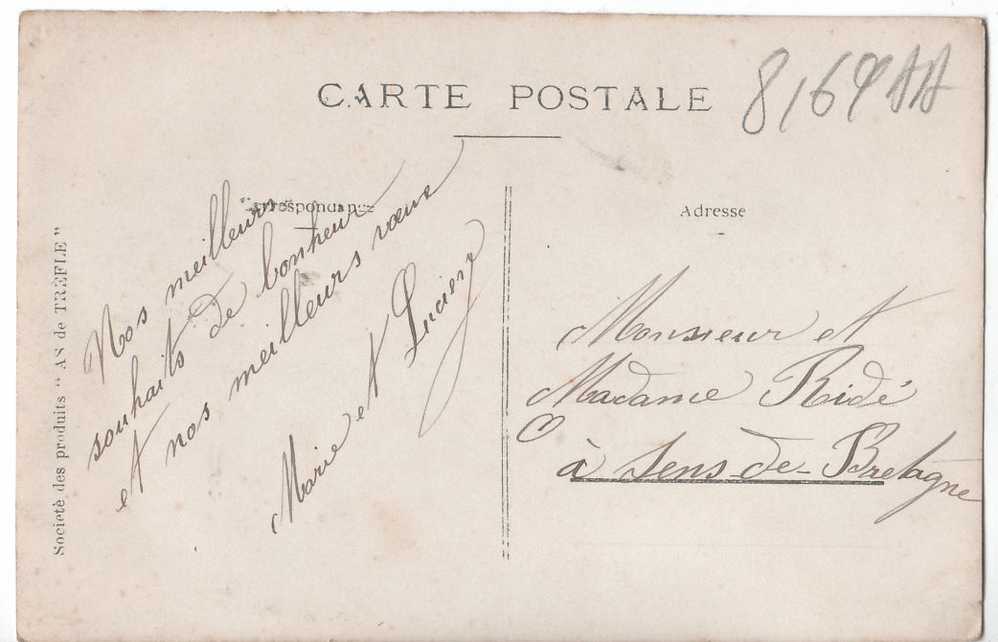 CARTE POSTALE
8169AA
Correspondance
Adresse
Nos meilleurs
souhaits de bonheur
et nos meilleurs vœux
Marie et Lucien
Monsieur et
Madame Ridé
à Sens-de-Bretagne
Societè des produits " AS de TRÈFLE "